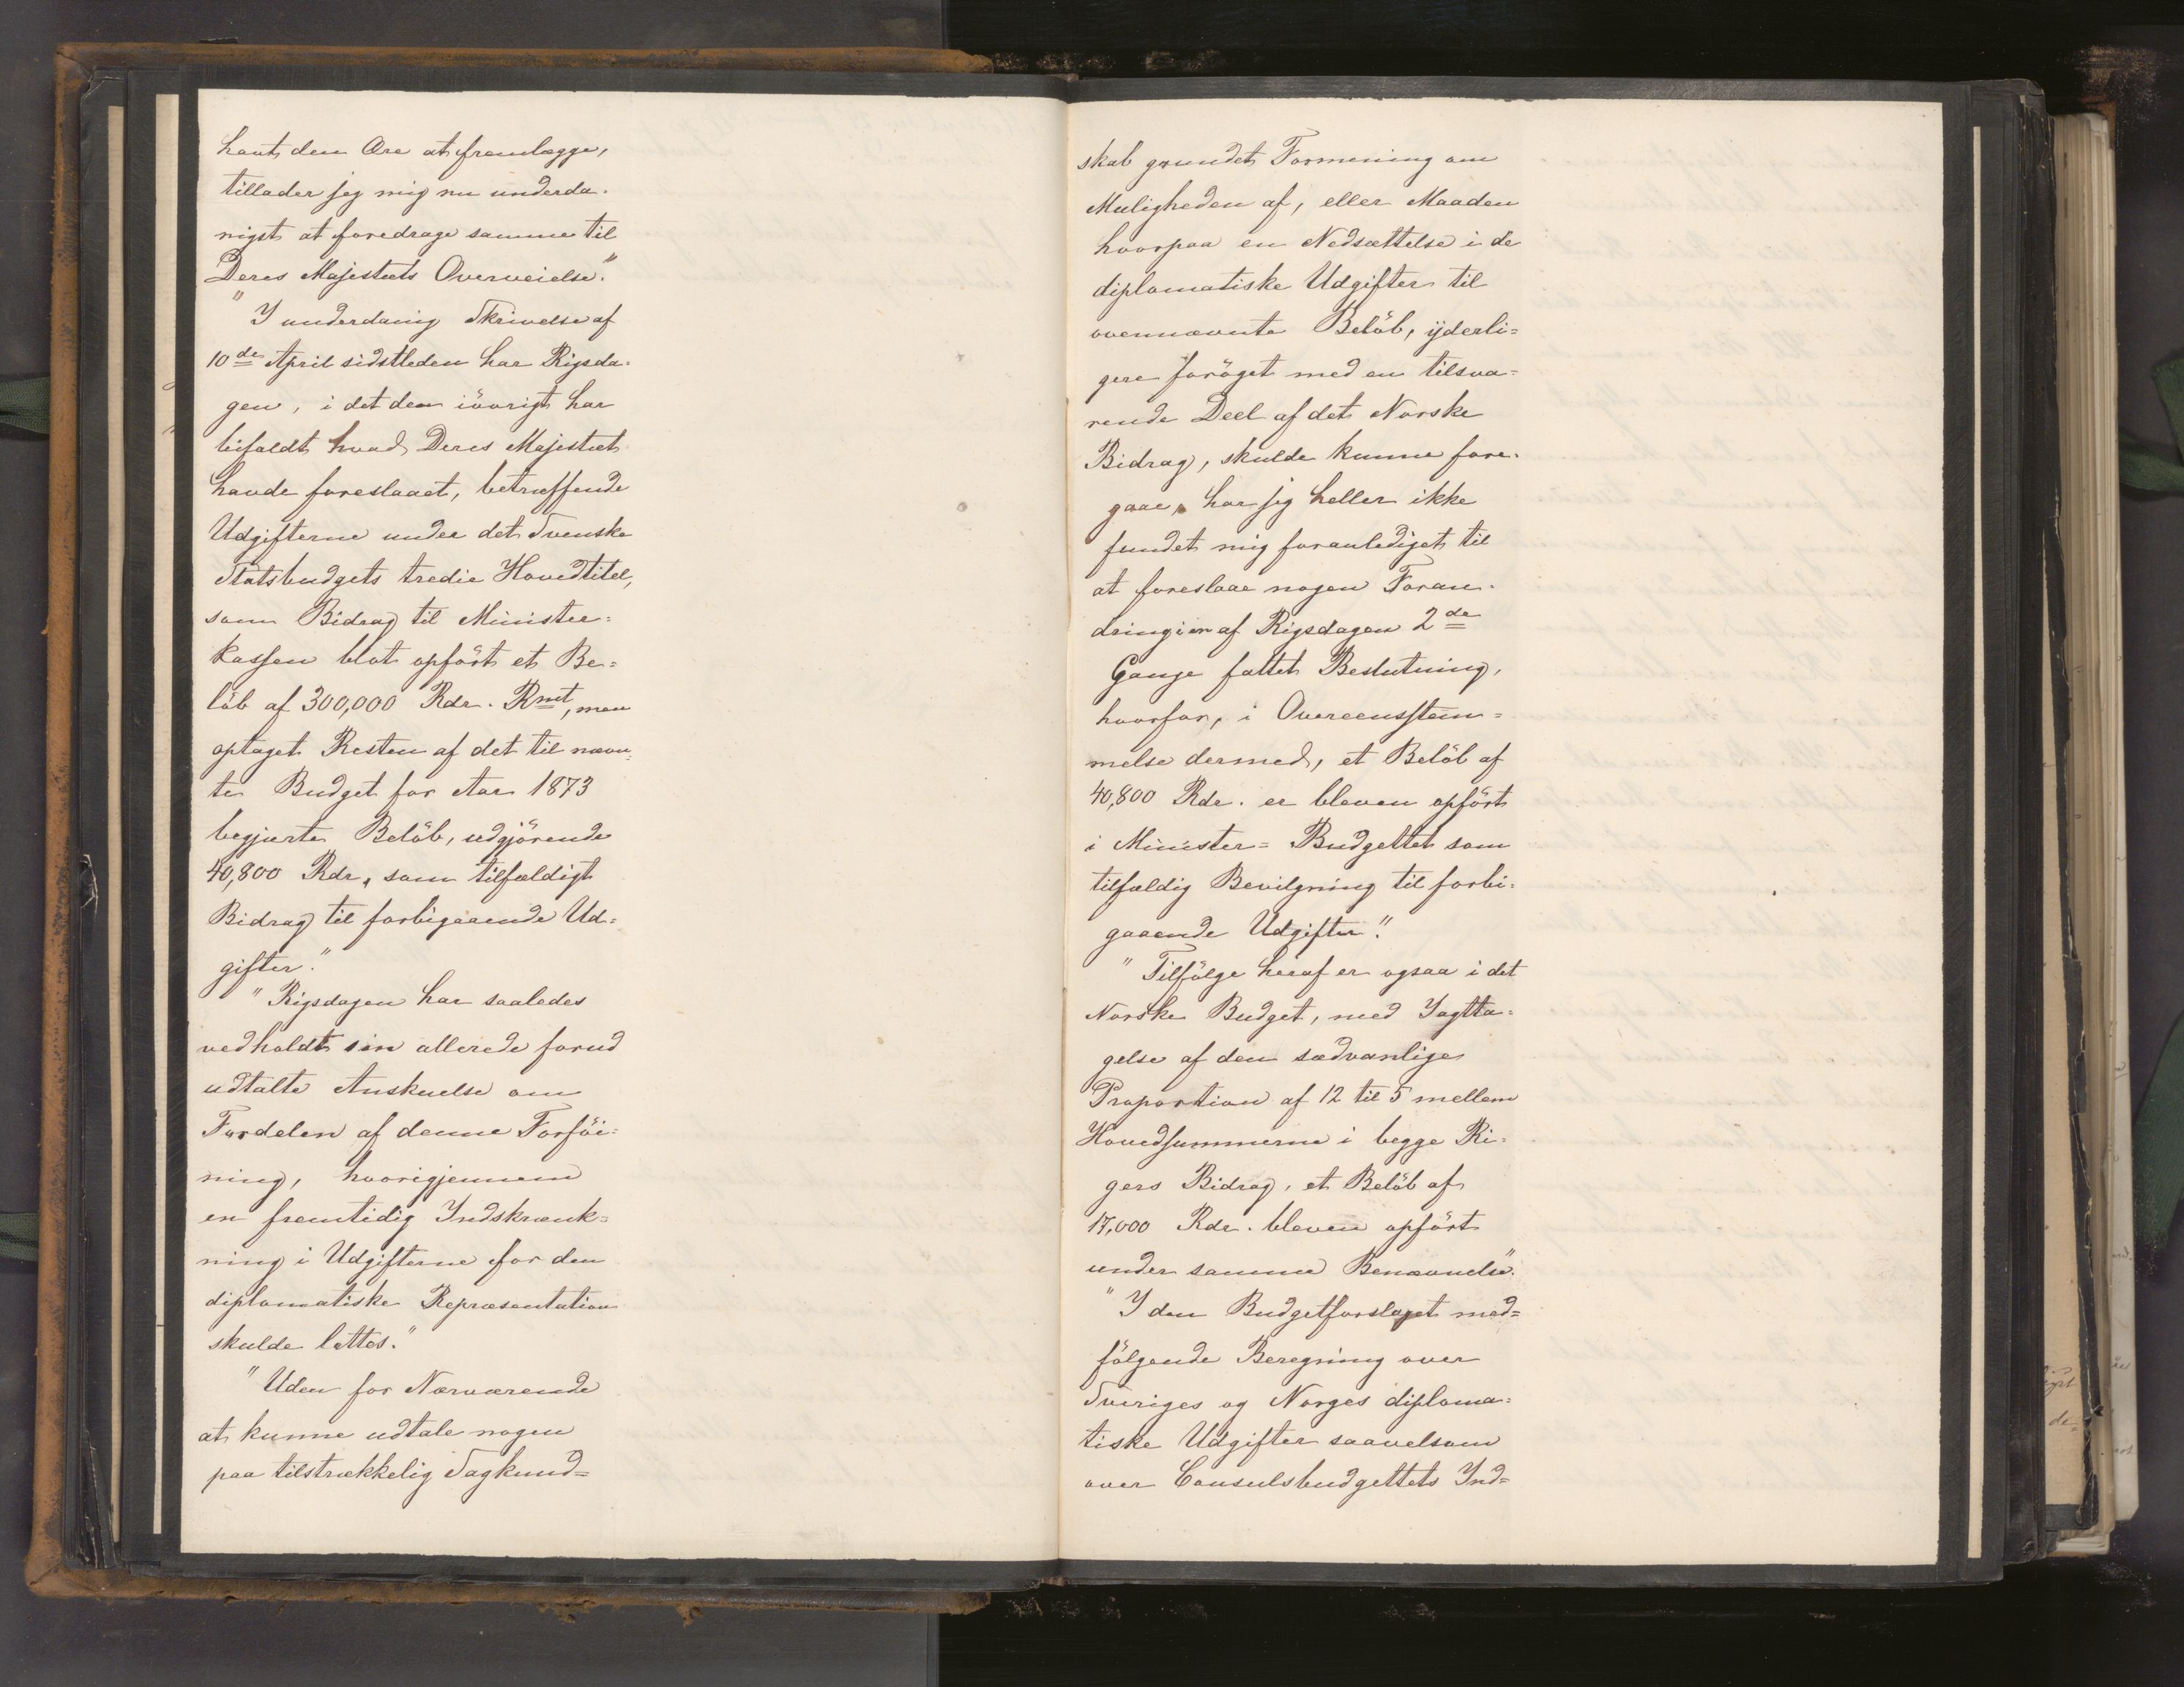 havt den Ære at fremlægge,
tillader jeg mig nu underda-
nigst at foredrage samme til
Deres Majestæts Overveielse."
"I underdanig Skrivelse af
10de April sidstleden har Rigsda-
gen, i det den iövrigt har
bifaldt hvad Deres Majestæt
havde foreslaaet, betræffende
Udgifterne under det Svenske
Statsbudgets tredie Hovedtitel,
som Bidrag til Minister=
kassen blot opfört et Be=
löb af 300,000 Rdr. Rmt, men
optaget Resten af det til nævn=
te Budget for Aar 1873
begjærte Belöb, udgjörende
40,800 Rdr, som tilfældigt
Bidrag til forbigaaende Ud=
gifter."
"Rigsdagen har saaledes
vedholdt sin allerede forud
udtalte Anskuelse om
Fordelen af denne Forföi=
ning, hvorigjennem
en fremtidig Indskrænk=
ning i Udgifterne for den
diplomatiske Repræsentation
skulde lettes."
"Uden for Nærværende
at kunne udtale nogen
paa tilstrækkelig Sagkund=
skab grundet Formening om
Muligheden af, eller Maaden
hvorpaa en Nedsættelse i de
diplomatiske Udgifter til
ovennævnte Belöb, ÿderli=
gere foröget med en tilsva=
rende Deel af det Norske
Bidrag, skulde kunne fore-
gaae, har jeg heller ikke
fundet mig foranlediget til
at foreslaae nogen Foran-
dring i en af Rigsdagen 2de
Gange fattet Beslutning,
hvorfor, i Overeensstem=
melse dermed, et Belöb af
40,800 Rdr. er bleven opfört
i Minister= Budgettet som
tilfældig Bevilgning til forbi-
gaaende Udgifter."
"Tilfölge heraf er ogsaa i det
Norske Budget, med Iagtta-
gelse af den sædvanlige
Proportion af 12 til 5 mellem
Hovedsummerne i begge Ri-
gers Bidrag, et Belöb af
17,000 Rdr. bleven opfört
under samme Benævnelse."
"I den Budgetforslaget med=
fölgende Beregning over
Sveriges og Norges diploma=
tiske Udgifter saavelsom
over Consulsbudgettets Ind=